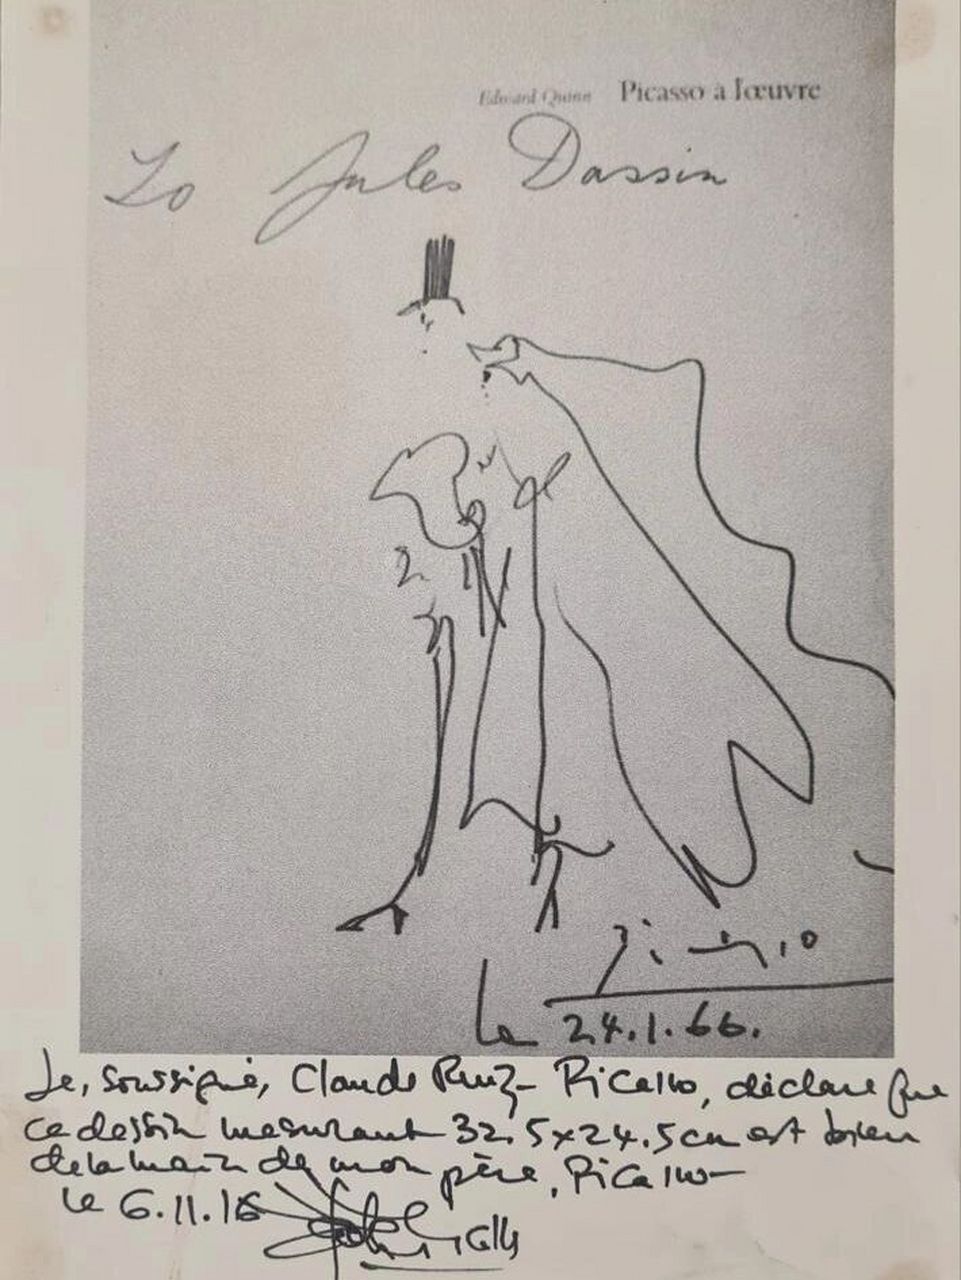 Edward Quinn Picasso à l'œuvre
To Jules Dassin
Picasso
Le 24.1.66.
Je, soussigné, Claude Ruiz-Picasso, déclare que
ce dessin mesurant 32.5x24.5cm est bien
de la main de mon père, Picasso-
le 6.11.16